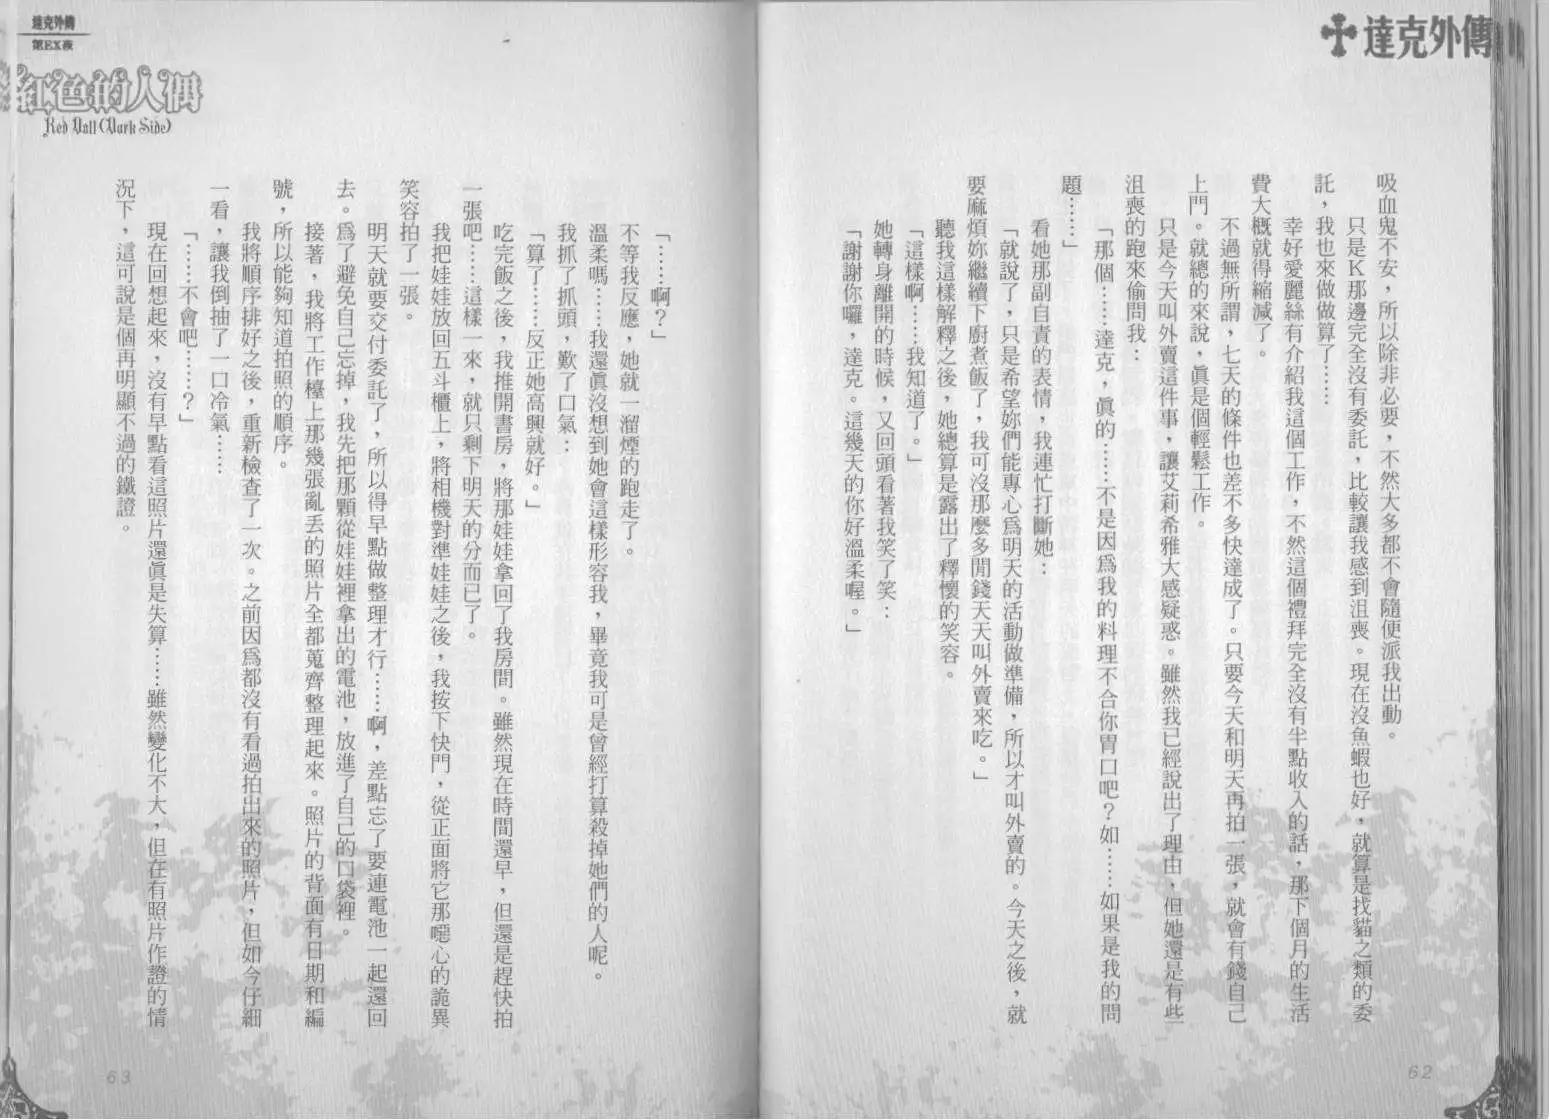 達克外傳
吸血鬼不安，所以除非必要，不然大多都不會隨便派我出動。
只是K那邊完全沒有委託，比較讓我感到沮喪。現在沒魚蝦也好，就算是找貓之類的委
託，我也來做做算了……
幸好愛麗絲有介紹我這個工作，不然這個禮拜完全沒有半點收入的話，那下個月的生活
費大概就得縮減了。
不過無所謂，七天的條件也差不多快達成了。只要今天和明天再拍一張，就會有錢自己
上門。就總的來說，真是個輕鬆工作。
只是今天叫外賣這件事，讓艾莉希雅大感疑惑。雖然我已經說出了理由，但她還是有些
沮喪的跑來偷問我：
「那個……達克，真的……不是因為我的料理不合你胃口吧？如……如果是我的問
題……」
看她那副自責的表情，我連忙打斷她：
「就說了，只是希望妳們能專心為明天的活動做準備，所以才叫外賣的。今天之後，就
要麻煩妳繼續下廚煮飯了，我可沒那麼多閒錢天天叫外賣來吃。」
聽我這樣解釋之後，她總算是露出了釋懷的笑容。
「這樣啊……我知道了。」
她轉身離開的時候，又回頭看著我笑了笑：
「謝謝你囉，達克。這幾天的你好溫柔喔。」
62
達克外傳
第EX夜
紅色的人偶
Red Doll (Dark Side)
「……啊？」
不等我反應，她就一溜煙的跑走了。
溫柔嗎……我還真沒想到她會這樣形容我，畢竟我可是曾經打算殺掉她們的人呢。
我抓了抓頭，歎了口氣：
「算了……反正她高興就好。」
吃完飯之後，我推開書房，將那娃娃拿回了我房間。雖然現在時間還早，但還是趕快拍
一張吧……這樣一來，就只剩下明天的分而已了。
我把娃娃放回五斗櫃上，將相機對準娃娃之後，我按下快門，從正面將它那噁心的詭異
笑容拍了一張。
明天就要交付委託了，所以得早點做整理才行……啊，差點忘了要連電池一起還回
去。為了避免自己忘掉，我先把那顆從娃娃裡拿出的電池，放進了自己的口袋裡。
接著，我將工作檯上那幾張亂丟的照片全都蒐齊整理起來。照片的背面有日期和編
號，所以能夠知道拍照的順序。
我將順序排好之後，重新檢查了一次。之前因為都沒有看過拍出來的照片，但如今仔細
一看，讓我倒抽了一口冷氣……
「……不會吧……？」
現在回想起來，沒有早點看這照片還真是失算……雖然變化不大，但在有照片作證的情
況下，這可說是個再明顯不過的鐵證。
63